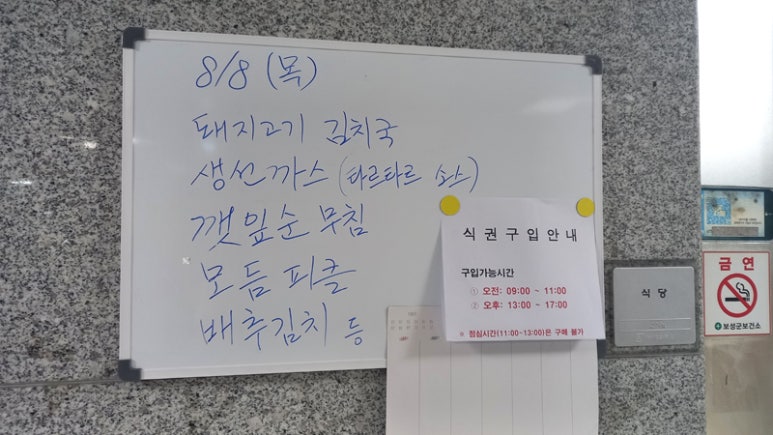 8/8 (목)
돼지고기 김치국
생선까스 (타르타르 소스)
깻잎순 무침
모듬 피클
배추김치 등
식 권 구 입 안 내
구입가능시간
① 오전: 09:00 ~ 11:00
② 오후: 13:00 ~ 17:00
※ 점심시간(11:00~13:00)은 구매 불가
식 당
금 연
보성군보건소